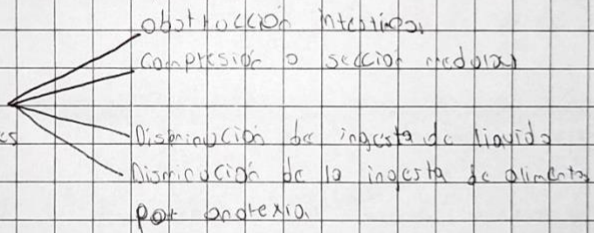 obstrucción intestinal
compresión o sección medular
es
Disminución de ingesta de liquido
Disminución de la ingesta de alimentos
por anorexia